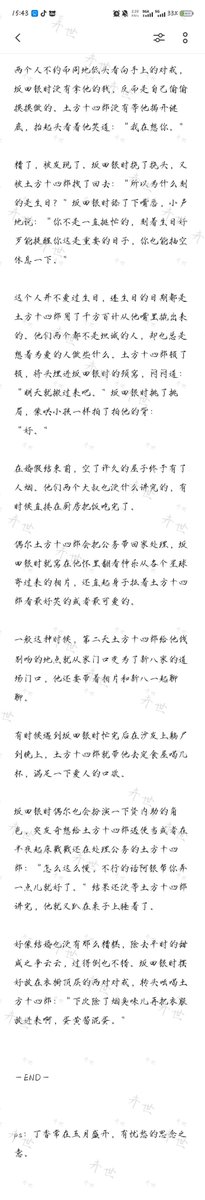 15:43
33%
两个人不约而同地低头看向手上的对戒，
坂田银时没有拿他的钱，反而是自己偷偷
摸摸做的。土方十四郎没有等他掰开谜
底，抬起头看着他笑道：“我在想你。”
糟了，被发现了。坂田银时挠了挠头，又
被土方十四郎拽了回去：“所以为什么刻
的是生日？”坂田银时舔了下嘴唇，小声
地说：“你不是一直挺忙的，刻着生日好
歹能提醒你这是重要的日子，你也能抽空
休息一下。”
这个人并不爱过生日，连生日的日期都是
土方十四郎用了千方百计从他嘴里撬出来
的。他们两个都不是坦诚的人，却也总是
想着为爱的人做些什么。土方十四郎顿了
顿，将头埋进坂田银时的颈窝，闷闷道：
“明天就搬过来吧。”坂田银时挑了挑
眉，像哄小孩一样拍了拍他的背：
“好。”
在婚假结束前，空了许久的屋子终于有了
人烟。他们两个大叔也没什么讲究的，有
时候直接在厨房把饭吃完了。
偶尔土方十四郎会把公务带回家处理，坂
田银时就窝在他怀里翻看神乐从各个星球
寄过来的相片，还直起身子拉着土方十四
郎看最好笑的或者最可爱的。
一般这种时候，第二天土方十四郎给他线
别吻的地点就从家门口变为了新八家的道
场门口，他还要带着相片和新八一起聊
聊。
有时候遇到坂田银时忙完后在沙发上躺尸
到晚上，土方十四郎就带他去定食屋喝几
杯，满足一下爱人的口欲。
坂田银时偶尔也会扮演一下贤内助的角
色，突发奇想给土方十四郎送便当或者在
半夜起床戳戳还在处理公务的土方十四
郎：“怎么这么慢，不行的话阿银帮你弄
一点儿就好了。”结果还没等土方十四郎
讲完，他就又趴在桌子上睡着了。
好像结婚也没有那么糟糕，除去平时的甜
咸之争云云，过得倒也不错。坂田银时摆
好放在衣橱顶层的两对对戒，转头哄喝土
方十四郎：“下次除了烟臭味儿再把衣服
放进来啊，蛋黄酱混蛋。”
—END—
ps：丁香常在五月盛开，有忧愁的思念之
意。